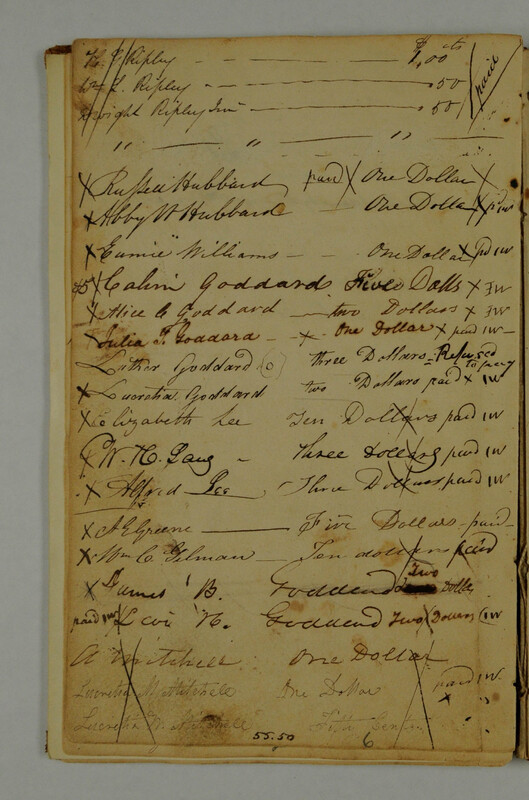 Ripley — — — $ cts 1,00
Wm L. Ripley — — — 50 paid
Dwight Ripley Jun — 50
" " "
X Russell Hubbard paid X One Dollar X
X Abby W Hubbard — One Dollar X pd IW
X Eunice Williams — — One Dollar X pd IW
X Calvin Goddard Five Dolls X IW
X Alice C Goddard — two Dollars X IW
X Julia Goddard — X One Dollar X paid IW
Luther Goddard three Dollars - Refused to pay
X Lucretia Goddard two Dollars paid X IW
X Elizabeth Lee Ten Dollars paid IW
W. H. three Dollars paid IW
X Alfred Lee Three Dollars paid IW
X Greene — Five Dollars - paid
X Wm C. Gilman — Ten dollars paid
X James B. Goddard Two Dolls
paid IW Levi H. Goddard Two Dollars IW
A Mitchell One Dollar
Lucretia Mitchell One Dollar paid IW
Lucretia Mitchell X "
55.50 6